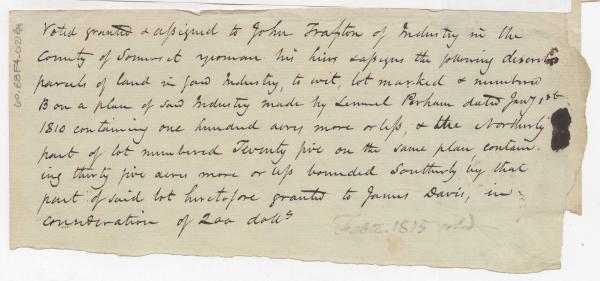 Voted granted & assigned to John Trafton of Industry in the
County of Somerset yeoman his heirs & assigns the following described
parcels of land in said Industry, to wit, lot marked & numbered
B on a plan of said Industry made by Lemuel Perham dated Jany 1st
1810 containing one hundred acres more or less, & the Northerly
part of lot numbered Twenty five on the same plan contain-
ing thirty five acres more or less bounded Southerly by that
part of said lot heretofore granted to James Davis, in
consideration of 200 dolls
Feb 2. 1815 voted